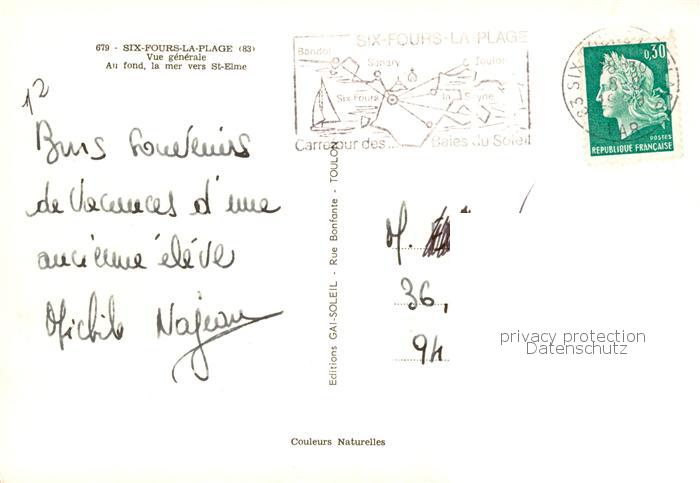 679 - SIX-FOURS-LA-PLAGE (83)
Vue générale
Au fond, la mer vers St-Elme
12
Bons Souvenirs
de Vacances d'une
ancienne élève
SIX-FOURS-LA-PLAGE
Bandol
Sanary
Toulon
Six-Fours
la Seyne
Carrefour des... Baies du Soleil
83 SIX
VAR
0,30
POSTES
REPUBLIQUE FRANÇAISE
Editions GAI-SOLEIL - Rue Bonfante - TOULON
M.
36,
94
privacy protection
Datenschutz
Couleurs Naturelles